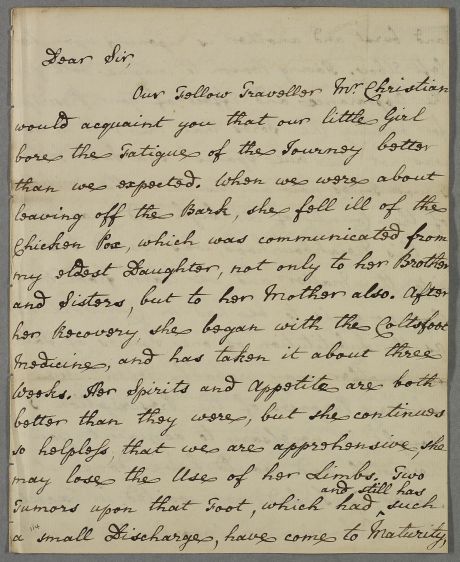 Dear Sir,
Our Fellow Traveller Mr. Christian
would acquaint you that our little Girl
bore the Fatigue of the Journey better
than we expected. When we were about
leaving off the Bark, she fell ill of the
Chicken Pox, which was communicated from
my eldest Daughter, not only to her Brother
and Sisters, but to her Mother also. After
her Recovery, she began with the Coltsfoot
Medicine, and has taken it about three
Weeks. Her Spirits and Appetite are both
better than they were, but she continues
so helpless, that we are apprehensive she
may lose the Use of her Limbs. Two
and still has
Tumors upon that Foot, which had ^ such
a small Discharge, have come to Maturity,